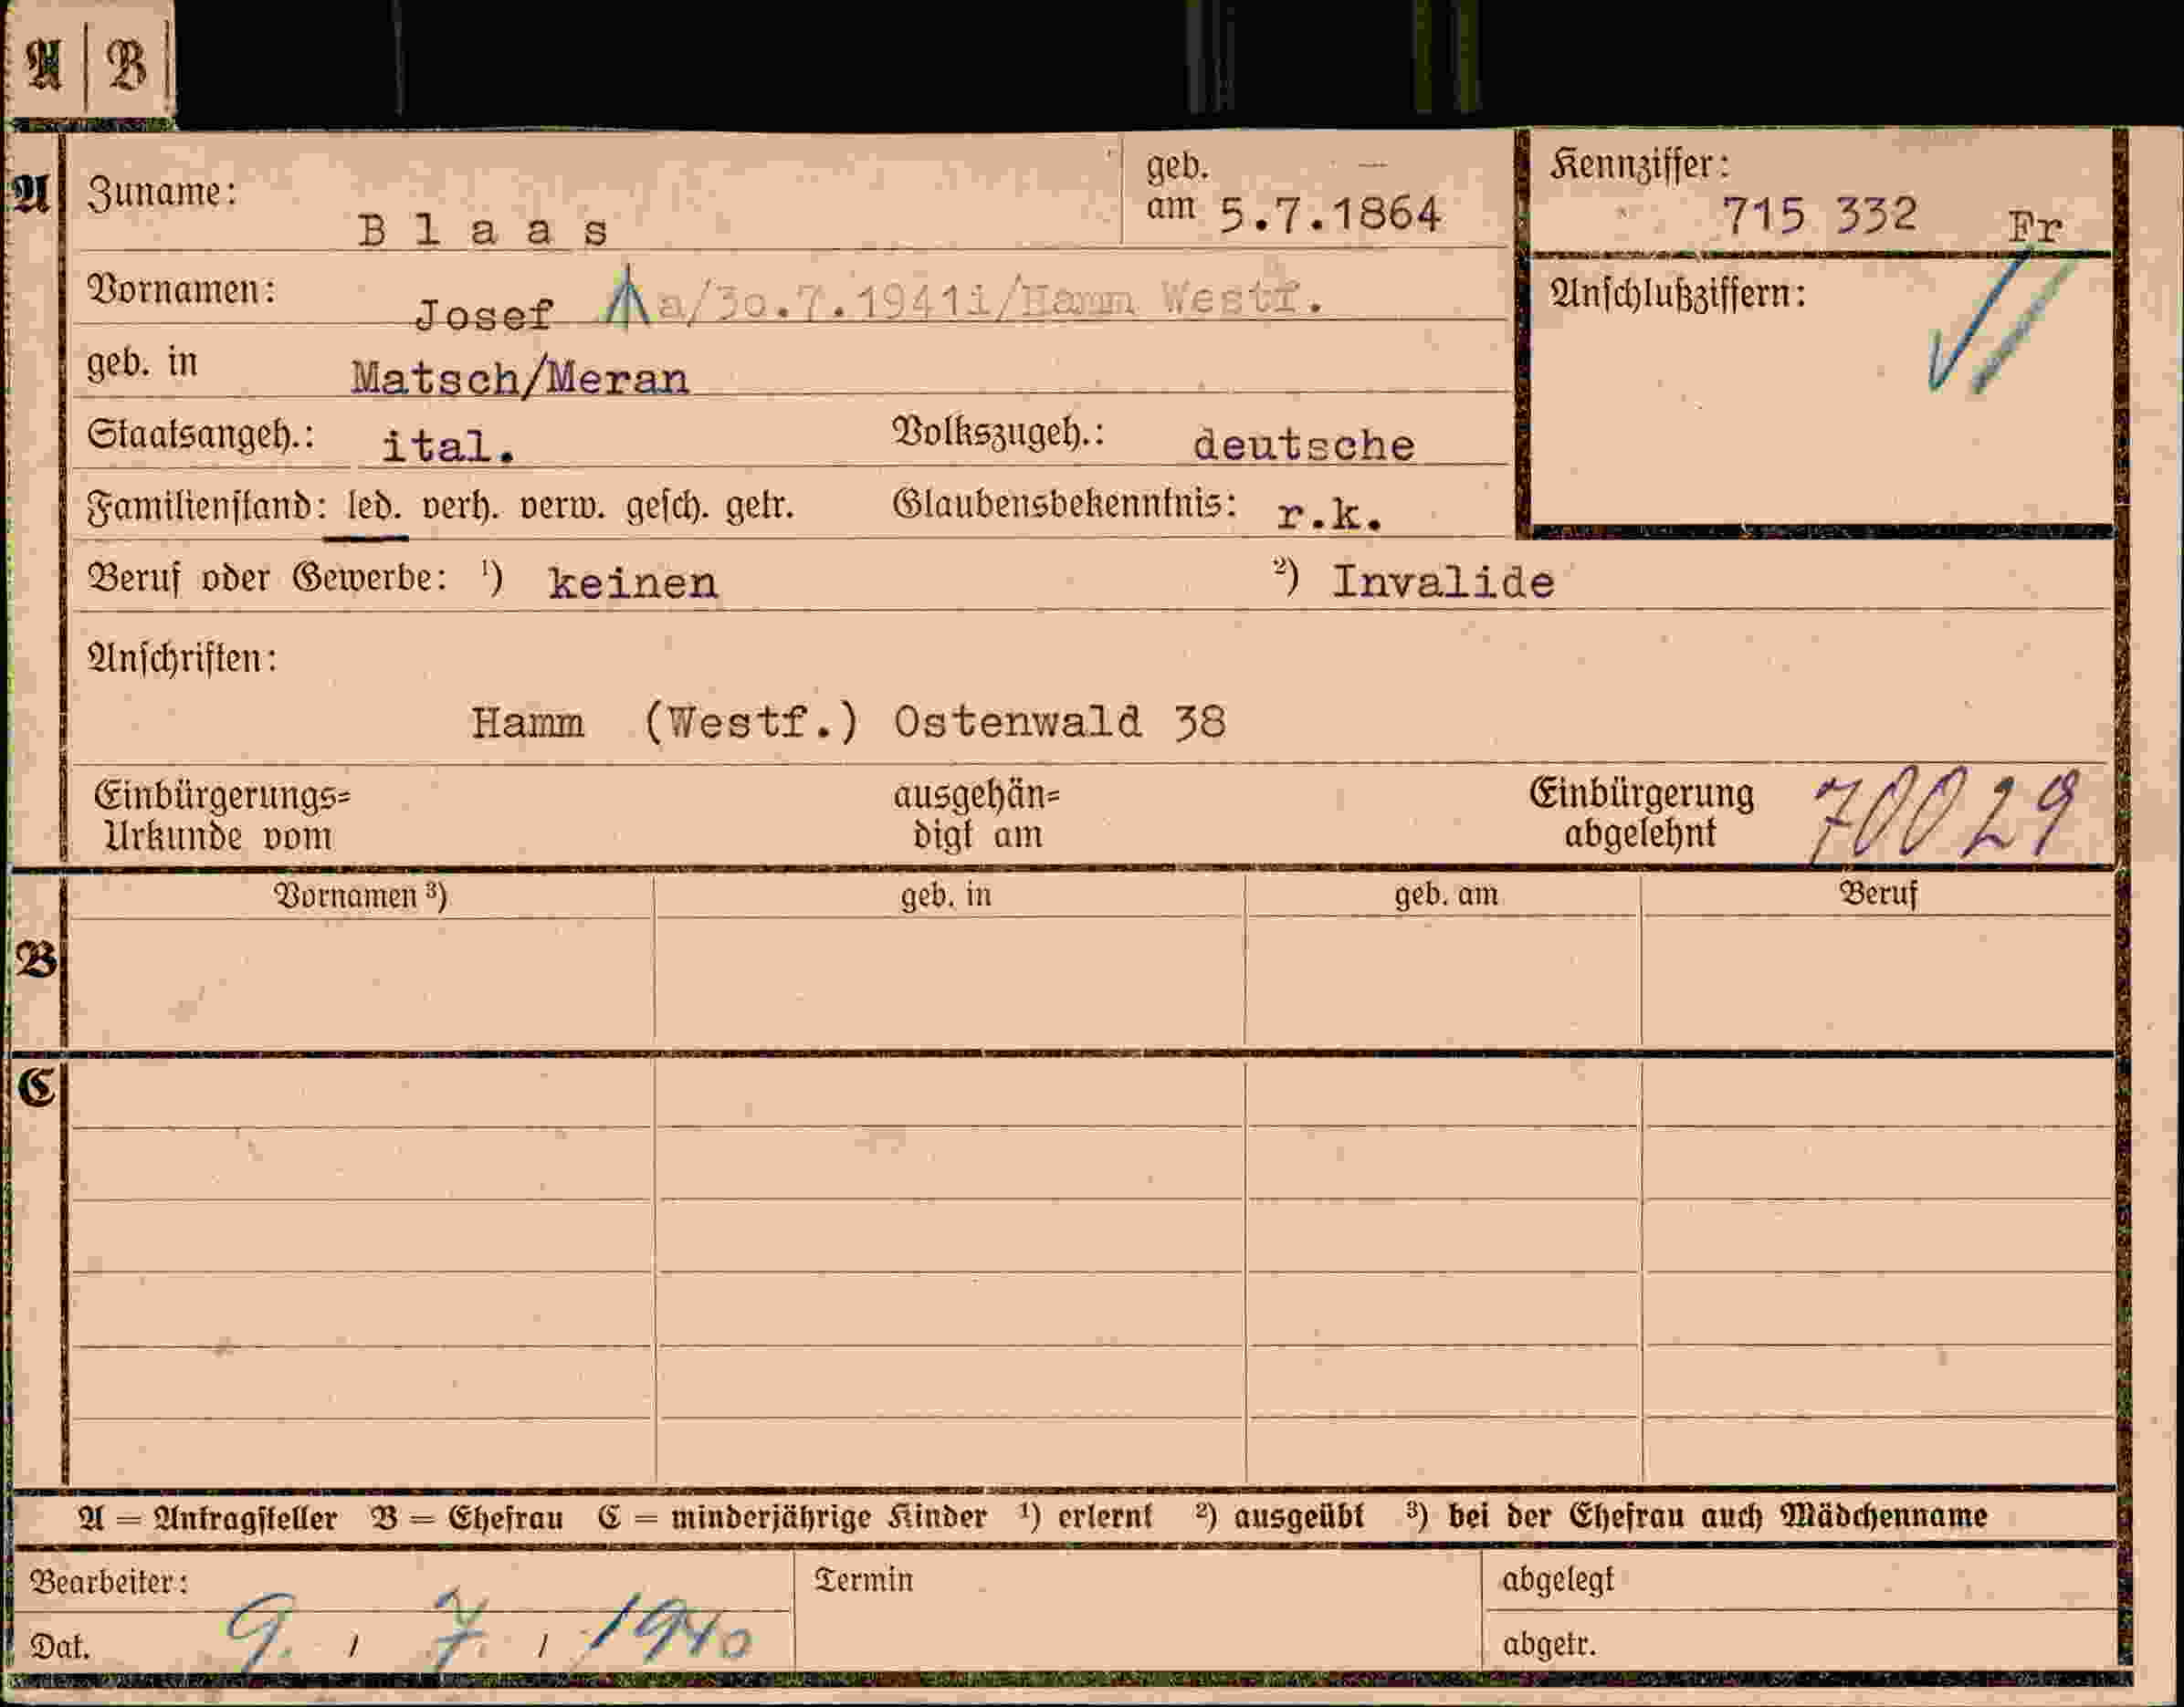 A | B
A
Zuname: B l a a s
geb. am 5.7.1864
Kennziffer: 715 332 Fr
Vornamen: Josef a/30.7.1941i/Hamm Westf.
Anschlußziffern:
geb. in Matsch/Meran
Staatsangeh.: ital. Volkszugeh.: deutsche
Familienstand: led. verh. verw. gesch. getr. Glaubensbekenntnis: r.k.
Beruf oder Gewerbe: ¹) keinen ²) Invalide
Anschriften:
Hamm (Westf.) Ostenwald 38
Einbürgerungs=
Urkunde vom
ausgehän=
digt am
Einbürgerung
abgelehnt
70029
Vornamen ³) geb. in geb. am Beruf
B
C
A = Antragsteller B = Ehefrau C = minderjährige Kinder ¹) erlernt ²) ausgeübt ³) bei der Ehefrau auch Mädchenname
Bearbeiter: Termin abgelegt
Dat. 9. / 7. / 1940 abgetr.